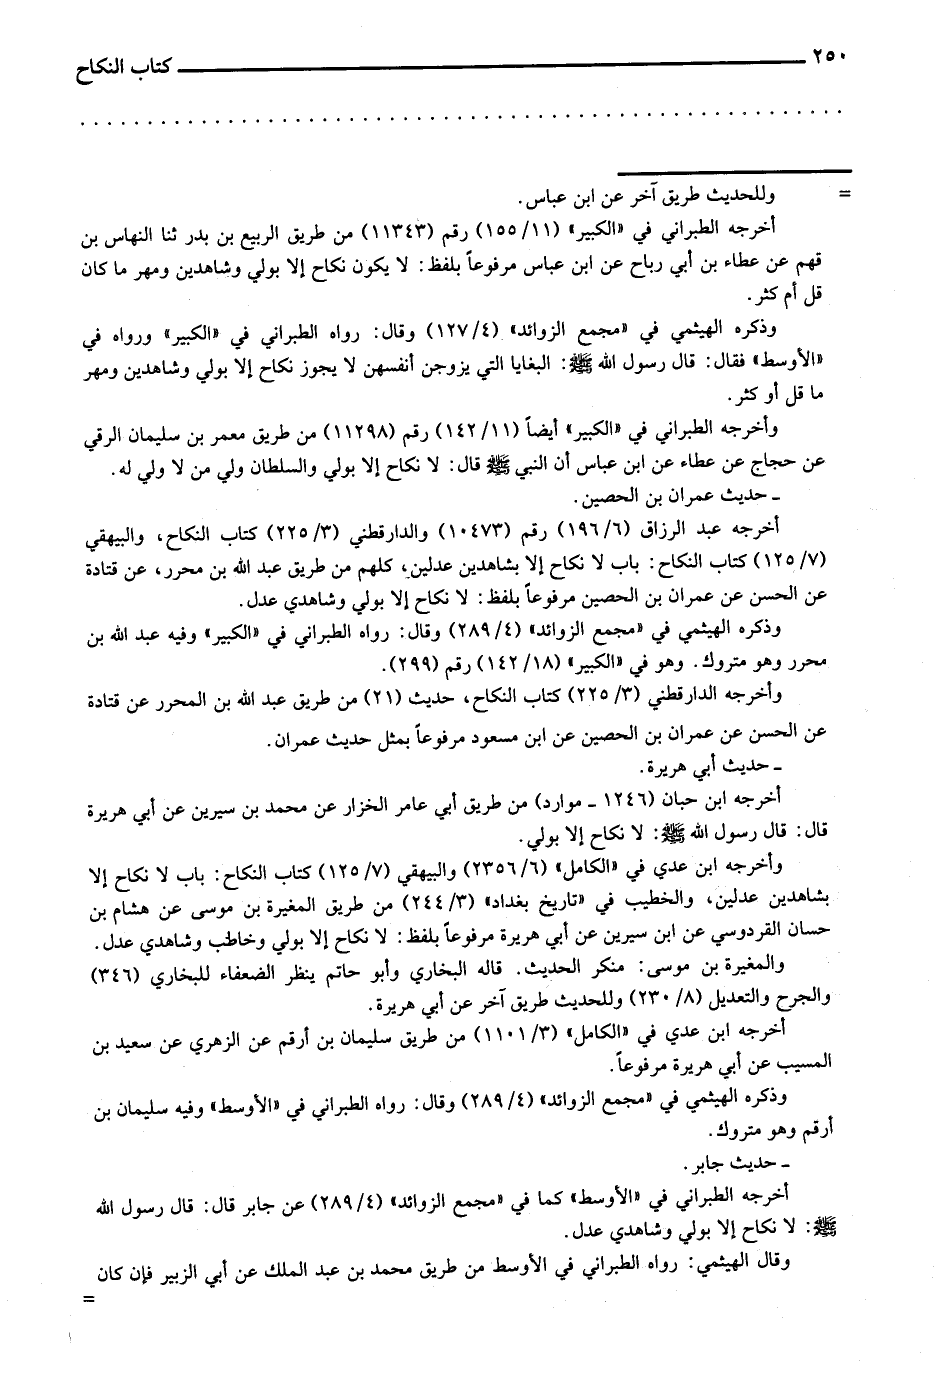 ٢٥٠ كتاب النكاح
= وللحديث طريق آخر عن ابن عباس.
أخرجه الطبراني في «الكبير» (١١/ ١٥٥) رقم (١١٣٤٣) من طريق الربيع بن بدر ثنا النهاس بن
قهم عن عطاء بن أبي رباح عن ابن عباس مرفوعاً بلفظ: لا يكون نكاح إلا بولي وشاهدين ومهر ما كان
قل أم كثر.
وذكره الهيثمي في «مجمع الزوائد» (٤/ ١٢٧) وقال: رواه الطبراني في «الكبير» ورواه في
«الأوسط» فقال: قال رسول الله ﷺ: البغايا التي يزوجن أنفسهن لا يجوز نكاح إلا بولي وشاهدين ومهر
ما قل أو كثر.
وأخرجه الطبراني في «الكبير» أيضاً (١١/ ١٤٢) رقم (١١٢٩٨) من طريق معمر بن سليمان الرقي
عن حجاج عن عطاء عن ابن عباس أن النبي ﷺ قال: لا نكاح إلا بولي والسلطان ولي من لا ولي له.
ـ حديث عمران بن الحصين.
أخرجه عبد الرزاق (٦/ ١٩٦) رقم (١٠٤٧٣) والدارقطني (٣/ ٢٢٥) كتاب النكاح، والبيهقي
(٧/ ١٢٥) كتاب النكاح: باب لا نكاح إلا بشاهدين عدلين، كلهم من طريق عبد الله بن محرر، عن قتادة
عن الحسن عن عمران بن الحصين مرفوعاً بلفظ: لا نكاح إلا بولي وشاهدي عدل.
وذكره الهيثمي في «مجمع الزوائد» (٤/ ٢٨٩) وقال: رواه الطبراني في «الكبير» وفيه عبد الله بن
محرر وهو متروك. وهو في «الكبير» (١٨/ ١٤٢) رقم (٢٩٩).
وأخرجه الدارقطني (٣/ ٢٢٥) كتاب النكاح، حديث (٢١) من طريق عبد الله بن المحرر عن قتادة
عن الحسن عن عمران بن الحصين عن ابن مسعود مرفوعاً بمثل حديث عمران.
ـ حديث أبي هريرة.
أخرجه ابن حبان (١٢٤٦ ـ موارد) من طريق أبي عامر الخزار عن محمد بن سيرين عن أبي هريرة
قال: قال رسول الله ﷺ: لا نكاح إلا بولي.
وأخرجه ابن عدي في «الكامل» (٦/ ٢٣٥٦) والبيهقي (٧/ ١٢٥) كتاب النكاح: باب لا نكاح إلا
بشاهدين عدلين، والخطيب في «تاريخ بغداد» (٣/ ٢٤٤) من طريق المغيرة بن موسى عن هشام بن
حسان القردوسي عن ابن سيرين عن أبي هريرة مرفوعاً بلفظ: لا نكاح إلا بولي وخاطب وشاهدي عدل.
والمغيرة بن موسى: منكر الحديث. قاله البخاري وأبو حاتم ينظر الضعفاء للبخاري (٣٤٦)
والجرح والتعديل (٨/ ٢٣٠) وللحديث طريق آخر عن أبي هريرة.
أخرجه ابن عدي في «الكامل» (٣/ ١١٠١) من طريق سليمان بن أرقم عن الزهري عن سعيد بن
المسيب عن أبي هريرة مرفوعاً.
وذكره الهيثمي في «مجمع الزوائد» (٤/ ٢٨٩) وقال: رواه الطبراني في «الأوسط» وفيه سليمان بن
أرقم وهو متروك.
ـ حديث جابر.
أخرجه الطبراني في «الأوسط» كما في «مجمع الزوائد» (٤/ ٢٨٩) عن جابر قال: قال رسول الله
ﷺ: لا نكاح إلا بولي وشاهدي عدل.
وقال الهيثمي: رواه الطبراني في الأوسط من طريق محمد بن عبد الملك عن أبي الزبير فإن كان
=